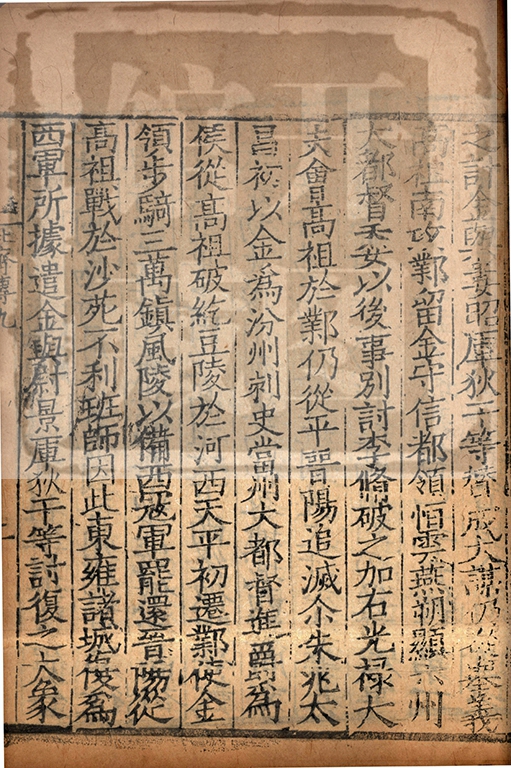 之計金與婁昭庫狄干等贊成大謀仍從舉義
高祖南攻鄴留金守信都領恒雲燕朔顯州
大都督委以後事別討李脩破之加右光祿大
夫會高祖於鄴仍從平晉陽追滅尒朱兆太
昌初以金爲汾州刺史當州大都督進爵爲
侯從高祖破紇豆陵於河西天平初遷鄴使金
領步騎三萬鎮風陵以備西寇軍罷還晉陽從
高祖戰於沙苑不利班師因此東雍諸城復爲
西軍所據遣金與尉景庫狄干等討復之象
北齊傳九